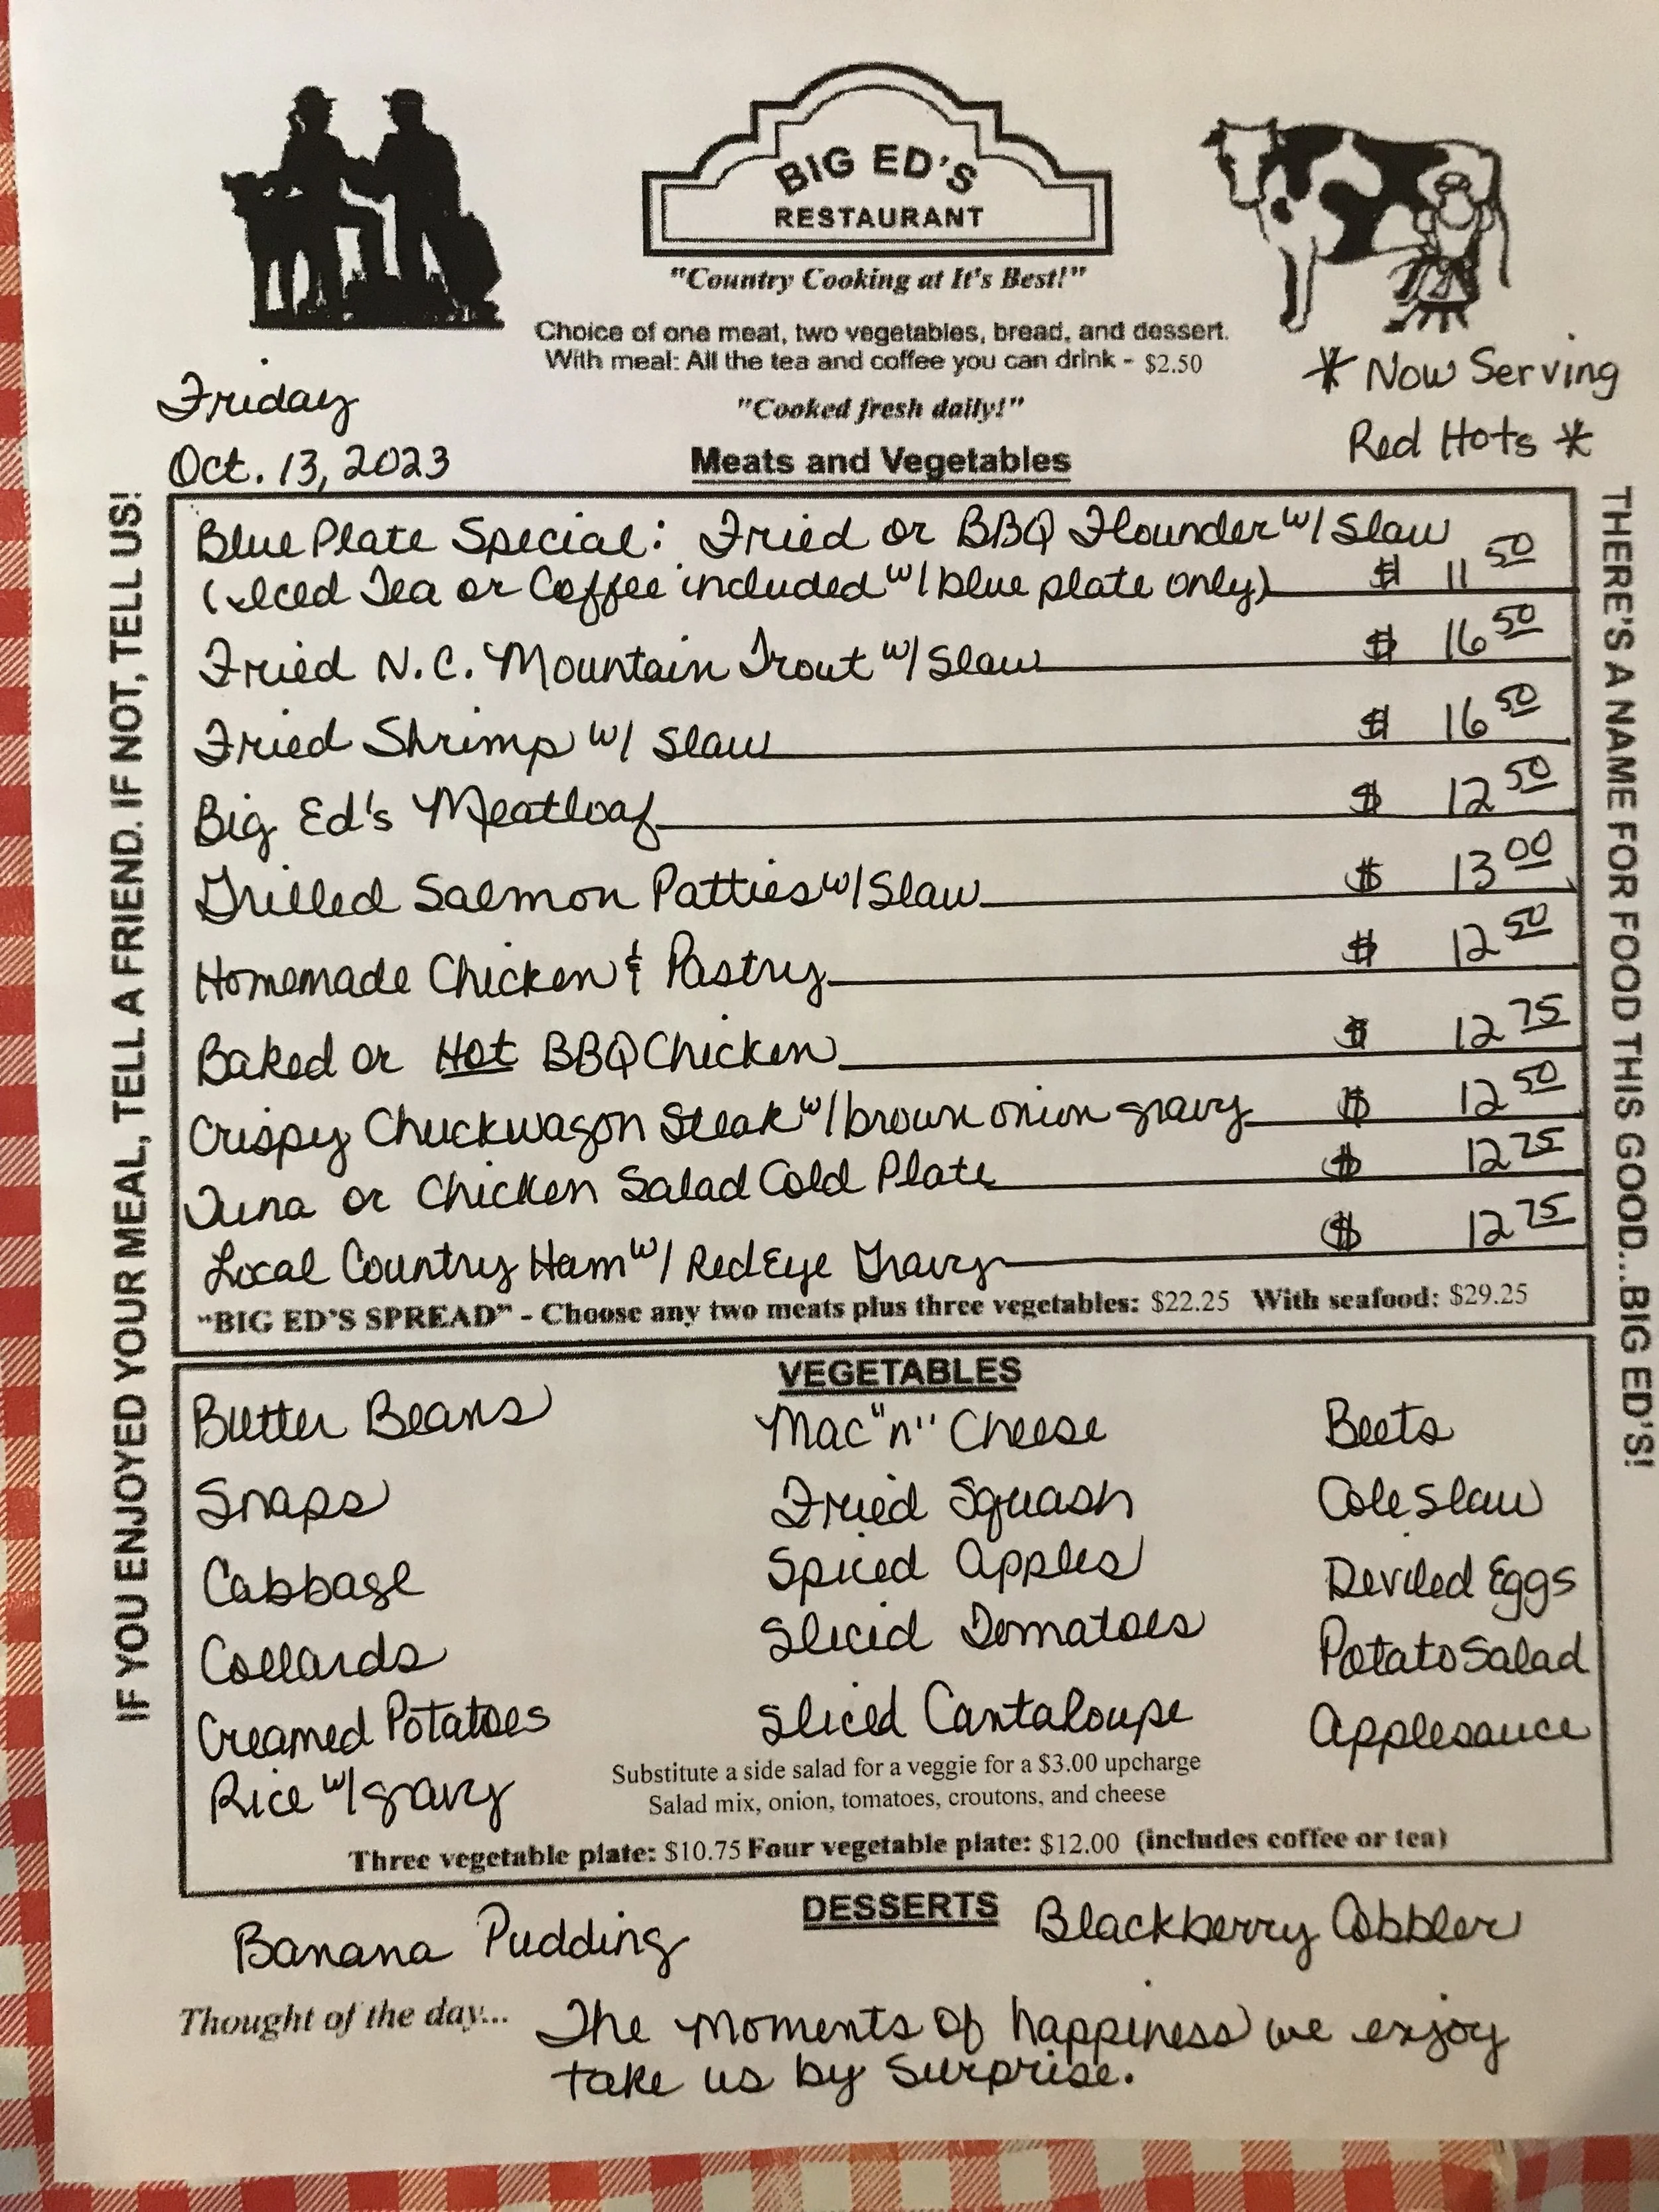 BIG ED'S
RESTAURANT
"Country Cooking at It's Best!"
Choice of one meat, two vegetables, bread, and dessert.
With meal: All the tea and coffee you can drink - $2.50
"Cooked fresh daily!"
* Now Serving
Red Hots *
Friday
Oct. 13, 2023
Meats and Vegetables
IF YOU ENJOYED YOUR MEAL, TELL A FRIEND. IF NOT, TELL US!
Blue Plate Special: Fried or BBQ Flounder w/ Slaw
(Iced Tea or Coffee included w/ blue plate only) $ 11 50
Fried N.C. Mountain Trout w/ Slaw $ 16 50
Fried Shrimp w/ Slaw $ 16 50
Big Ed's Meatloaf $ 12 50
Grilled Salmon Patties w/ Slaw $ 13 00
Homemade Chicken & Pastry $ 12 50
Baked or Hot BBQ Chicken $ 12 75
Crispy Chuckwagon Steak w/ brown onion gravy $ 12 50
Tuna or Chicken Salad Cold Plate $ 12 75
Local Country Ham w/ Red Eye Gravy $ 12 75
"BIG ED'S SPREAD" - Choose any two meats plus three vegetables: $22.25 With seafood: $29.25
THERE'S A NAME FOR FOOD THIS GOOD...BIG ED'S!
VEGETABLES
Butter Beans Mac "n" Cheese Beets
Snaps Fried Squash Cole Slaw
Cabbage Spiced Apples Deviled Eggs
Collards Sliced Tomatoes Potato Salad
Creamed Potatoes Sliced Cantaloupe Applesauce
Rice w/ gravy
Substitute a side salad for a veggie for a $3.00 upcharge
Salad mix, onion, tomatoes, croutons, and cheese
Three vegetable plate: $10.75 Four vegetable plate: $12.00 (includes coffee or tea)
DESSERTS
Banana Pudding Blackberry Cobbler
Thought of the day... The moments of happiness we enjoy
take us by surprise.